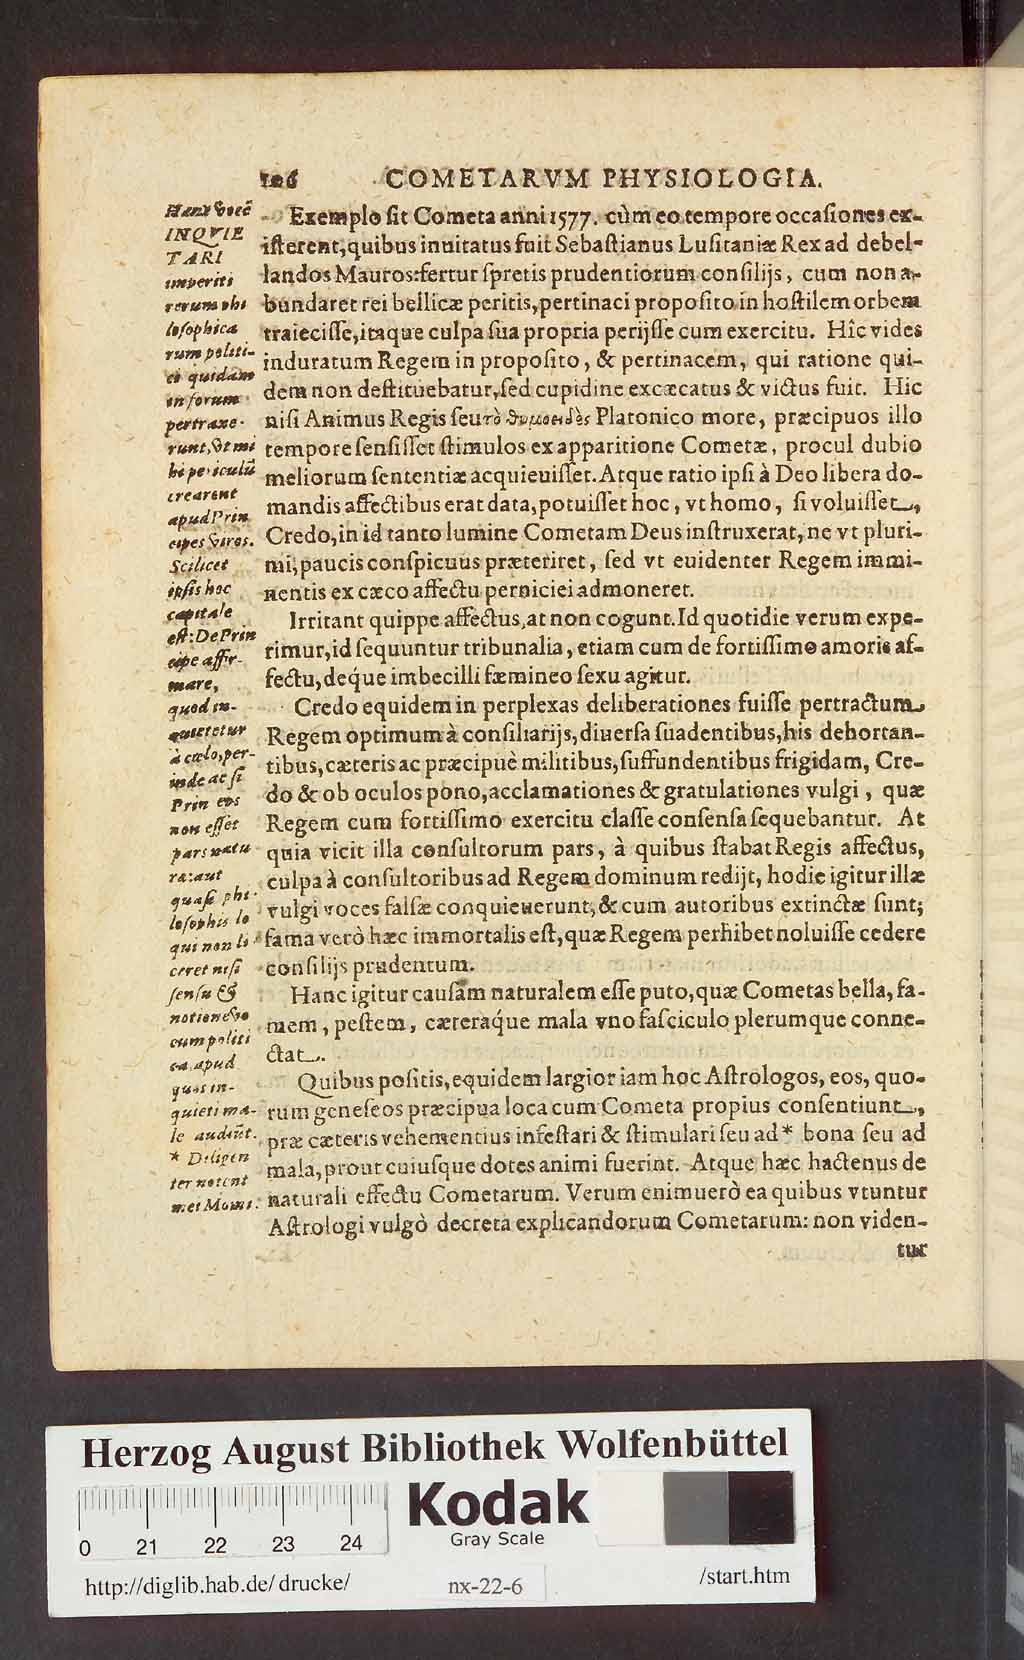 106 COMETARVM PHYSIOLOGIA.
Exemplo ſit Cometa anni 1577. cùm eo tempore occaſiones ex-
iſterent, quibus inuitatus fuit Sebaſtianus Luſitaniæ Rex ad debel-
landos Mauros: fertur ſpretis prudentiorum conſilijs, cum non a-
bundaret rei bellicæ peritis, pertinaci propoſito in hoſtilem orbem
traieciſſe, itaque culpa ſua propria perijſſe cum exercitu. Hîc vides
induratum Regem in propoſito, & pertinacem, qui ratione qui-
dem non deſtituebatur, ſed cupidine excæcatus & victus fuit. Hic
niſi Animus Regis ſeu τὸ θυμοειδὲς Platonico more, præcipuos illo
tempore ſenſiſſet ſtimulos ex apparitione Cometæ, procul dubio
meliorum ſententiæ acquieuiſſet. Atque ratio ipſi à Deo libera do-
mandis affectibus erat data, potuiſſet hoc, vt homo, ſi voluiſſet,
Credo, in id tanto lumine Cometam Deus inſtruxerat, ne vt pluri-
mi, paucis conſpicuus præteriret, ſed vt euidenter Regem immi-
nentis ex cæco affectu perniciei admoneret.
Irritant quippe affectus, at non cogunt. Id quotidie verum expe-
rimur, id ſequuntur tribunalia, etiam cum de fortiſſimo amoris af-
fectu, deq́ue imbecilli fæmineo ſexu agitur.
Credo equidem in perplexas deliberationes fuiſſe pertractum
Regem optimum à conſiliarijs, diuerſa ſuadentibus, his dehortan-
tibus, cæteris ac præcipuè militibus, ſuffundentibus frigidam, Cre-
do & ob oculos pono, acclamationes & gratulationes vulgi, quæ
Regem cum fortiſſimo exercitu claſſe conſenſa ſequebantur. At
quia vicit illa conſultorum pars, à quibus ſtabat Regis affectus,
culpa à conſultoribus ad Regem dominum redijt, hodie igitur illæ
vulgi voces falſæ conquieuerunt, & cum autoribus extinctæ ſunt;
fama verò hæc immortalis eſt, quæ Regem perhibet noluiſſe cedere
conſilijs prudentum.
Hanc igitur cauſam naturalem eſſe puto, quæ Cometas bella, fa-
mem, peſtem, cæteraq́ue mala vno faſciculo plerumque conne-
ctat.
Quibus poſitis, equidem largior iam hoc Aſtrologos, eos, quo-
rum geneſeos præcipua loca cum Cometa propius conſentiunt,
præ cæteris vehementius infeſtari & ſtimulari ſeu ad* bona ſeu ad
mala, prout cuiuſque dotes animi fuerint. Atque hæc hactenus de
naturali effectu Cometarum. Verum enimuerò ea quibus vtuntur
Aſtrologi vulgò decreta explicandorum Cometarum: non viden-
tur
Hanc vocē
INQVIE
TARI
imperiti
rerum phi
loſophica
rum politi-
ci quidam
in forum
pertraxe-
runt, vt mi
hi periculū
crearent
apud Prin
cipes viros.
Scilicet
ipſis hoc
capitale
eſt: De Prin
cipe affir-
mare,
quod in-
quietetur
à cælo, per-
inde ac ſi
Prin eps
non eſſet
pars natu
ræ: aut
quaſi phi-
loſophis lo
qui non li-
ceret niſi
ſenſu &
notione vo
cum politi
ca, apud
quos in-
quieti ma-
le audiūt.
* Diligen
ter notent
mei Momi.
Herzog August Bibliothek Wolfenbüttel
0 21 22 23 24
Kodak
Gray Scale
http://diglib.hab.de/drucke/ nx-22-6 /start.htm